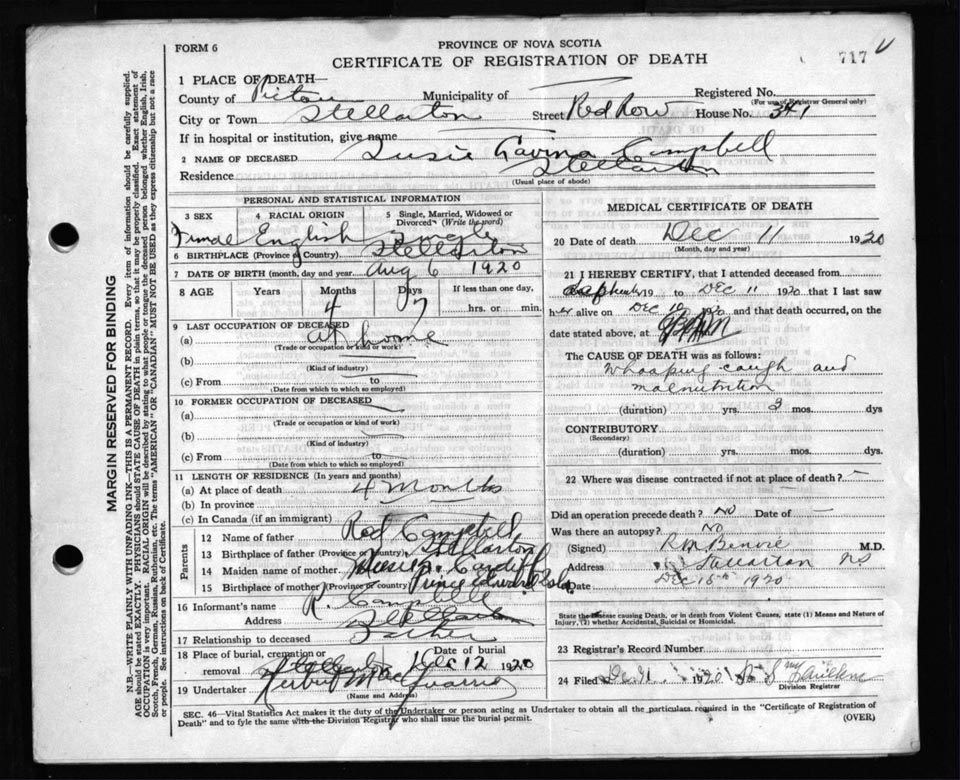 FORM 6
PROVINCE OF NOVA SCOTIA
CERTIFICATE OF REGISTRATION OF DEATH
717
1 PLACE OF DEATH—
County of Pictou Municipality of Registered No.
(For use of Registrar General only)
City or Town Stellarton Street Red Row House No. 341
If in hospital or institution, give name
2 NAME OF DECEASED Susie Gavina Campbell
Residence Stellarton
(Usual place of abode)
PERSONAL AND STATISTICAL INFORMATION
3 SEX 4 RACIAL ORIGIN 5 Single, Married, Widowed or Divorced (Write the word)
Female English Single
6 BIRTHPLACE (Province or Country) Stellarton
7 DATE OF BIRTH (month, day and year) Aug 6 1920
8 AGE Years Months Days If less than one day,
4 hrs. or min.
9 LAST OCCUPATION OF DECEASED
(a) at home
(Trade or occupation or kind of work)
(b)
(Kind of industry)
(c) From to
(Date from which to which so employed)
10 FORMER OCCUPATION OF DECEASED
(a)
(Trade or occupation or kind of work)
(b)
(Kind of industry)
(c) From to
(Date from which to which so employed)
11 LENGTH OF RESIDENCE (In years and months)
(a) At place of death 4 Months
(b) In province
(c) In Canada (if an immigrant)
Parents
12 Name of father Rod Campbell
13 Birthplace of father (Province or country) Stellarton
14 Maiden name of mother Cardiff
15 Birthplace of mother (Province or country) Prince Edward Isld
16 Informant's name R. Campbell
Address Stellarton
17 Relationship to deceased Father
18 Place of burial, cremation or removal Date of burial
Stellarton Dec 12 1920
19 Undertaker Herbert MacQuarrie
(Name and Address)
MEDICAL CERTIFICATE OF DEATH
20 Date of death Dec 11 1920
(Month, day and year)
21 I HEREBY CERTIFY, that I attended deceased from
19 to Dec 11 1920 that I last saw
her alive on Dec 10 1920 and that death occurred, on the
date stated above, at
The CAUSE OF DEATH was as follows:
Whooping-cough and
malnutrition
(duration) yrs. 3 mos. dys
CONTRIBUTORY
(Secondary)
(duration) yrs. mos. dys.
22 Where was disease contracted if not at place of death? —
Did an operation precede death? No Date of —
Was there an autopsy? No
(Signed) M.D.
Address Stellarton NS
Date Dec 15th 1920
State the Disease causing Death, or in death from Violent Causes, state (1) Means and Nature of
Injury, (2) whether Accidental, Suicidal or Homicidal.
23 Registrar's Record Number
24 Filed 1920
Division Registrar
SEC. 46—Vital Statistics Act makes it the duty of the Undertaker or person acting as Undertaker to obtain all the particulars required in the "Certificate of Registration of
Death" and to fyle the same with the Division Registrar who shall issue the burial permit. (OVER)
MARGIN RESERVED FOR BINDING
N.B.—WRITE PLAINLY WITH UNFADING INK—THIS IS A PERMANENT RECORD. Every item of information should be carefully supplied.
AGE should be stated EXACTLY. PHYSICIANS should STATE CAUSE OF DEATH in plain terms, so that it may be properly classified. Exact statement of
OCCUPATION is very important. RACIAL ORIGIN will be described by stating to what people or tongue the deceased person belonged whether English, Irish,
Scotch, French, German, Russian, Ruthenian, etc. The terms "AMERICAN" OR "CANADIAN" MUST NOT BE USED as they express citizenship but not a race
or people. See instructions on back of Certificate.